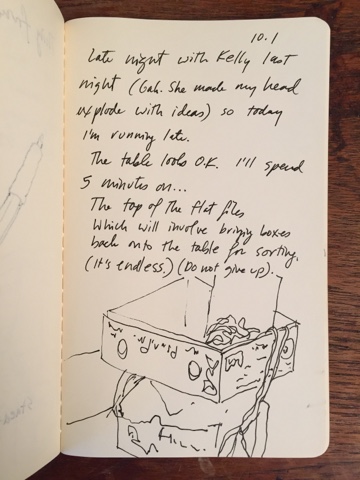 10.1
Late night with Kelly last
night (Gah. She made my head
explode with ideas) so today
I'm running late.
The table looks O.K. I'll spend
5 minutes on...
The top of the flat files
which will involve bringing boxes
back onto the table for sorting.
(It's endless.) (Do not give up).